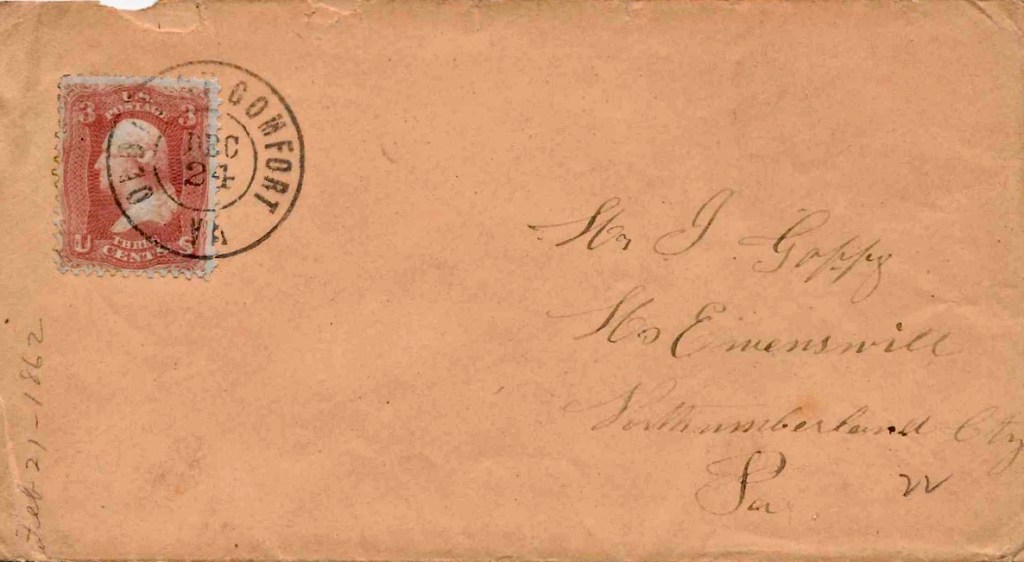 3 3
U
THREE
CENTS
OLD COMFORT
DEC
24
VA
Mr J Goppy
Mc Ewenswill
Northumberland Cty
Pa
Feb 21-1862